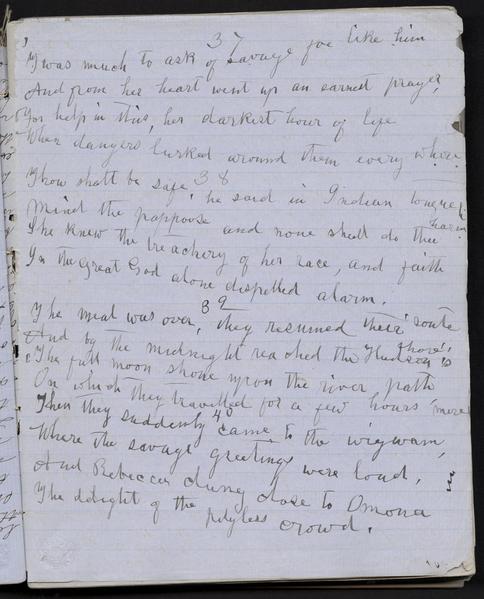 37
'Twas much to ask of savage foe like him
And from her heart went up an earnest prayer,
For help in this, her darkest hour of life
When dangers lurked around them every where.
38
Thou shalt be safe, he said in Indian tongue
Mind the pappoose and none shall do thee harm
She knew the treachery of her race, and faith
In the Great God alone dispelled alarm.
39
The meal was over, they resumed their route
And by the midnight reached the Hudson's shore,
The full moon shone upon the river path
On which they travelled for a few hours more
40
Then they suddenly came to the wigwam,
Where the savage greetings were loud,
And Rebecca clung close to Omona
The delight of the pityless crowd.